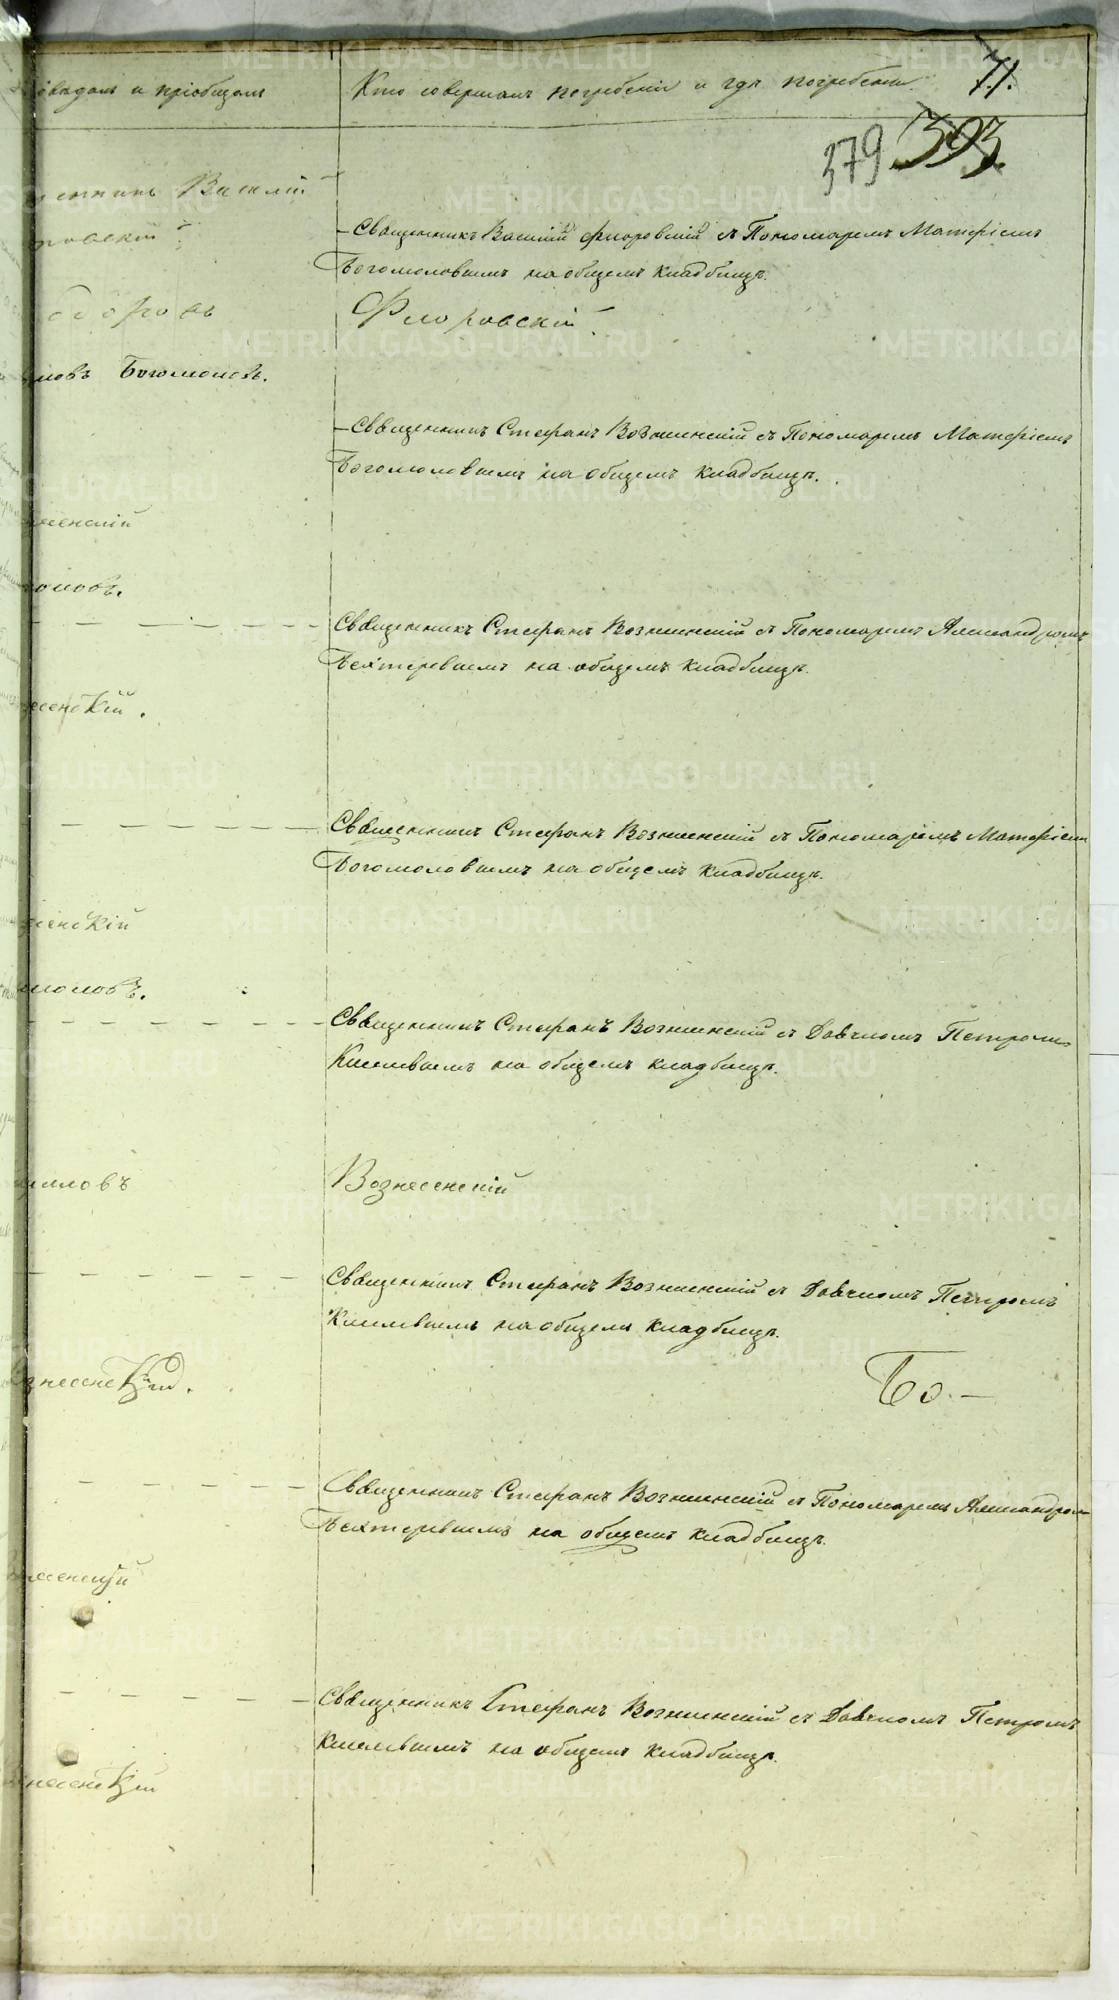 овѣдалъ и пріобщалъ
Кто совершалъ погребеніе и гдѣ погребены.
71.
379 393.
Василій
-Священникъ Василій Флоровскій съ Пономаремъ Матфіемъ
Богомоловымъ на общемъ кладбищѣ.
Флоровскій.
ловъ Богомоловъ.
-Священникъ Стефанъ Вознесенскій съ Пономаремъ Матфіемъ
Богомоловымъ на общемъ кладбищѣ.
сенскій
моловъ.
Священникъ Стефанъ Вознесенскій съ Пономаремъ Александромъ
Бехтеревымъ на общемъ кладбищѣ.
есенскій.
Священникъ Стефанъ Вознесенскій съ Пономаремъ Матфіемъ
Богомоловымъ на общемъ кладбищѣ.
есенскій
моловъ.
Священникъ Стефанъ Вознесенскій съ Дьячкомъ Петромъ
Киселевымъ на общемъ кладбищѣ.
Вознесенскій
Священникъ Стефанъ Вознесенскій съ Дьячкомъ Петромъ
Киселевымъ на общемъ кладбищѣ.
знесенскій.
Бо.-
Священникъ Стефанъ Вознесенскій съ Пономаремъ Александромъ
Бехтеревымъ на общемъ кладбищѣ.
сенскій
Священникъ Стефанъ Вознесенскій съ Дьячкомъ Петромъ
Киселевымъ на общемъ кладбищѣ.
несенскій
METRIKI.GASO-URAL.RU